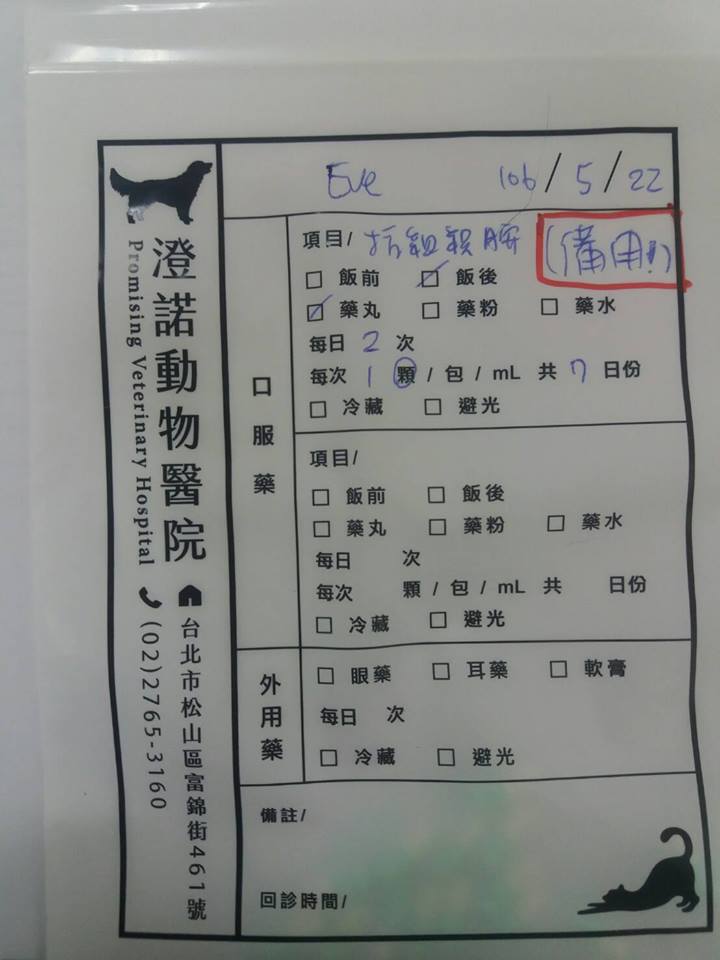 澄諾動物醫院
Promising Veterinary Hospital
台北市松山區富錦街461號
(02)2765-3160
Eve 106/5/22
口服藥
項目/ 抗組織胺 (備用!)
飯前 飯後
藥丸 藥粉 藥水
每日 2 次
每次 1 顆 / 包 / mL 共 7 日份
冷藏 避光
項目/
飯前 飯後
藥丸 藥粉 藥水
每日 次
每次 顆 / 包 / mL 共 日份
冷藏 避光
外用藥
眼藥 耳藥 軟膏
每日 次
冷藏 避光
備註/
回診時間/